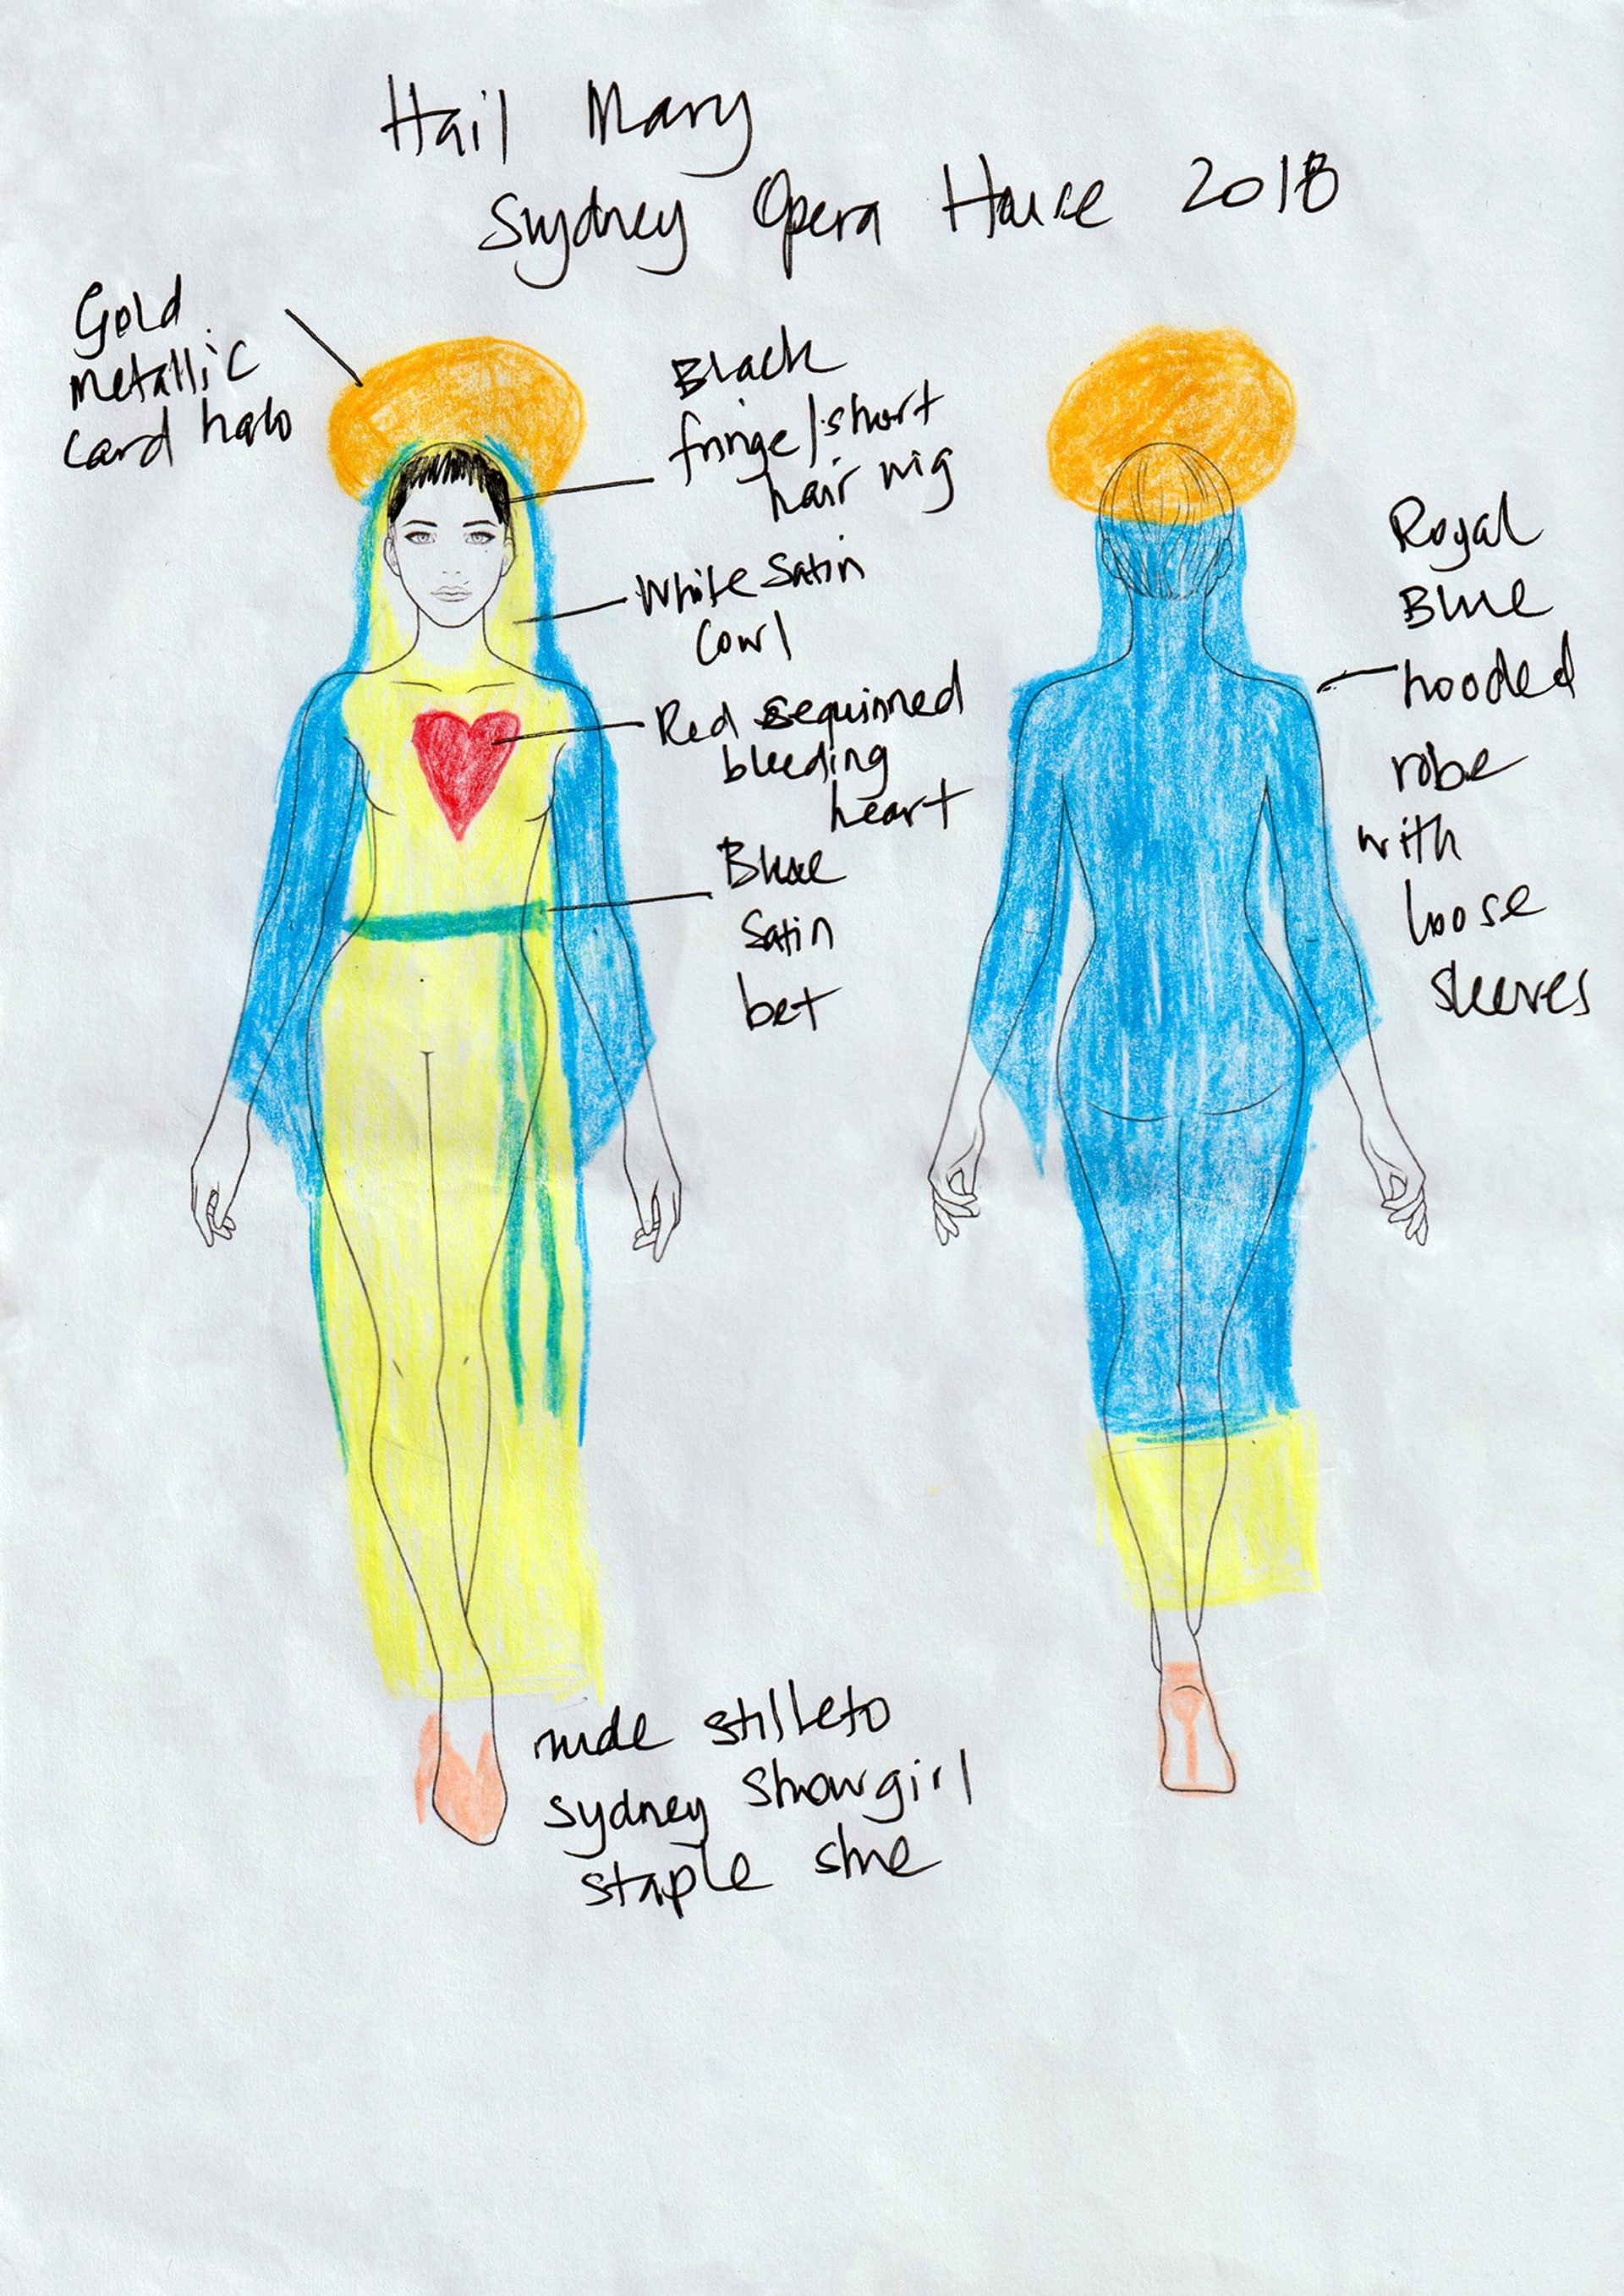 Hail Mary
Sydney Opera House 2018
Gold
metallic
card halo
Black
fringe/short
hair wig
White Satin
Cowl
Red sequinned
bleeding
heart
Blue
Satin
bet
Royal
Blue
hooded
robe
with
loose
sleeves
nude stilleto
sydney showgirl
staple shoe